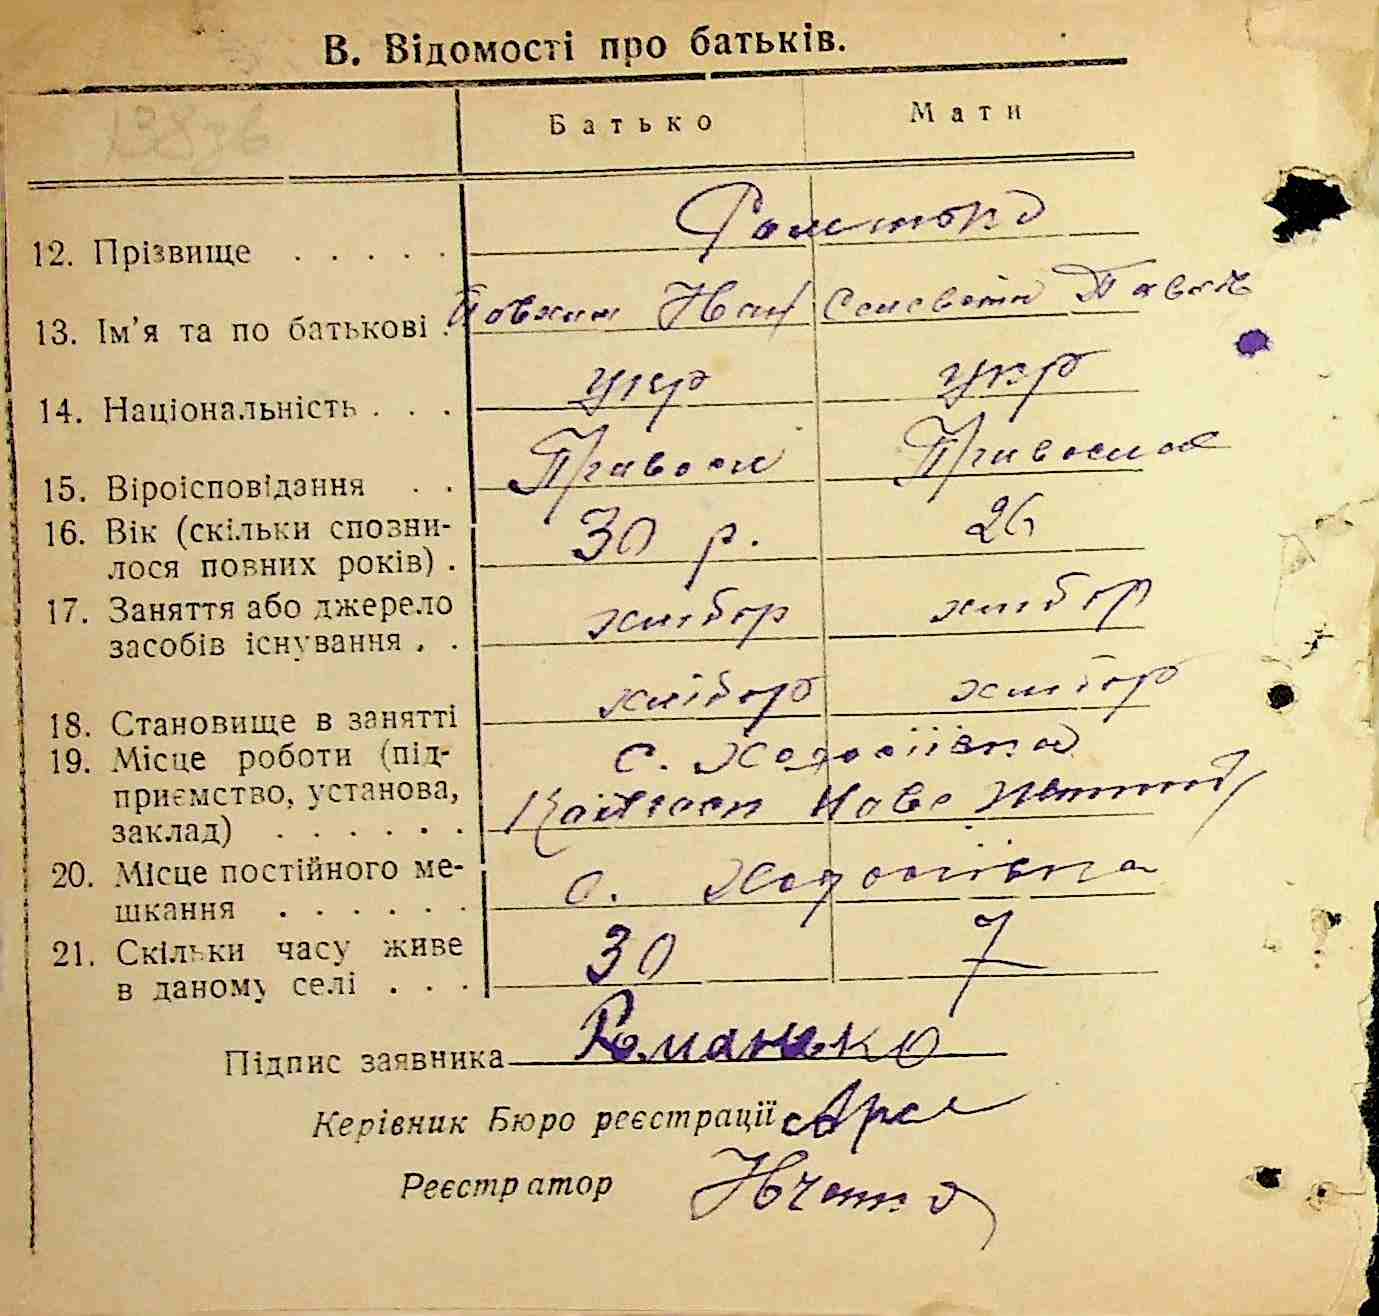 В. Відомості про батьків.
Батько Мати
12. Прізвище . . . . .
13. Ім'я та по батькові . Іван
14. Національність . . . укр укр
15. Віроісповідання . . Правосл Православ
16. Вік (скільки спозни-
лося повних років) . 30 р. 26
17. Заняття або джерело
засобів існування . . хлібор хлібор
18. Становище в занятті хлібор хлібор
19. Місце роботи (під- с. Ходосіївка
приємство, установа,
заклад) . . . . . . Нове
20. Місце постійного ме-
шкання . . . . . . с. Ходосіївка
21. Скільки часу живе
в даному селі . . . 30 7
Підпис заявника Романько
Керівник Бюро реєстрації
Реєстратор